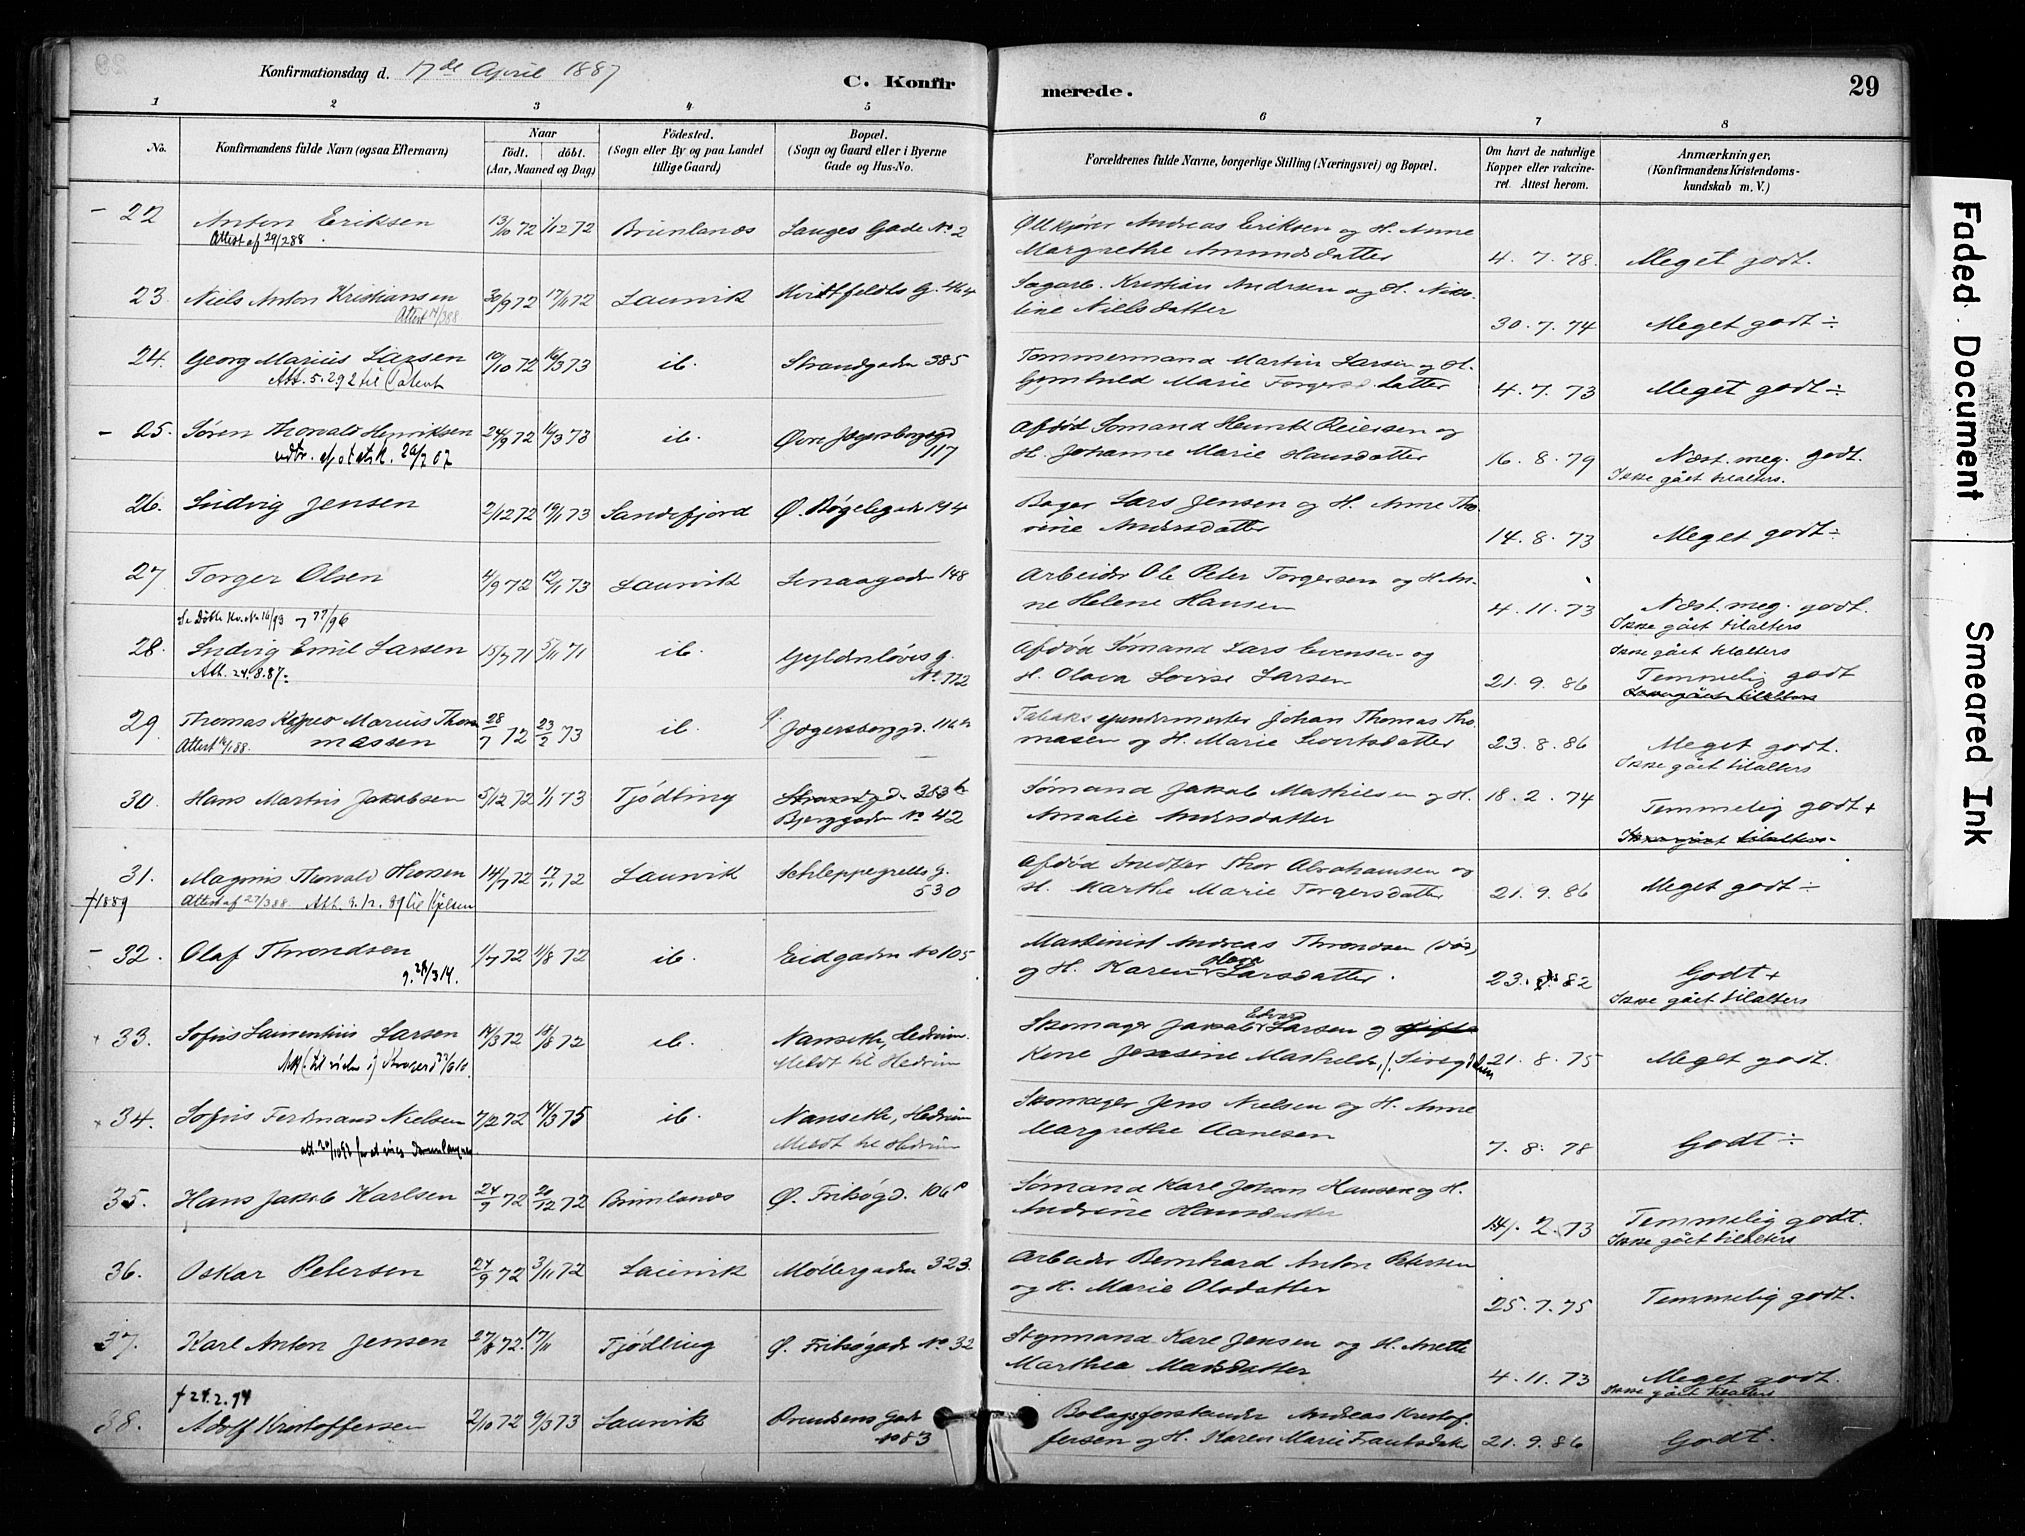 Konfirmationsdag d. 17de April 1887
C. Konfir
merede.
29
1 2 3 4 5 6 7 8
No.
Konfirmandens fulde Navn (ogsaa Efternavn)
Naar
födt. döbt.
(Aar, Maaned og Dag)
Födested.
(Sogn eller By og paa Landet
tillige Gaard)
Bopæl.
(Sogn og Gaard eller i Byerne
Gade og Hus-No.
Forældrenes fulde Navne, borgerlige Stilling (Næringsvei) og Bopæl.
Om havt de naturlige
Kopper eller vakcine-
ret. Attest herom.
Anmærkninger.
(Konfirmandens Kristendoms-
kundskab m. V.)
22 Anton Eriksen 13/10 72 1/12 72 Brunlanes Langes Gade No 2 Ølkjører Andreas Eriksen og H. Anne
Attest af 29/288. Margrethe Amundsdatter 4. 7. 78. Meget godt.
23. Niels Anton Kristiansen 30/9 72 17/11 72 Laurvik Hvidtfeldts G. 464 Sagarb. Kristian Andersen og H. Niko-
Attest 14/388 line Nielsdatter 30. 7. 74 Meget godt ÷
24. Georg Marius Larsen 19/10 72 16/3 73 ib. Strandgaden 385 Tømmermand Martin Larsen og H.
Att. 5.292 til Patent Gunhild Marie Torgersdatter 4. 7. 73 Meget godt ÷
25. Søren Thorvald Henriksen 24/9 72 16/3 73 ib. Øvre Jegersborggd Afdød Sømand Henrik Reiersen og
117 H. Johanne Marie Hansdatter 16. 8. 79 Næst. meg. godt.
Ikke gået tilalters.
26. Ludvig Jensen 2/12 72 19/1 73 Sandefjord Ø. Bøgelegade 194 Bager Lars Jensen og H. Anne Tho-
rine Andersdatter 14. 8. 73 Meget godt ÷
27 Torger Olsen 4/9 72 12/1 73 Laurvik Linaagaden 148 Arbeider Ole Peter Torgersen og H. An-
ne Helene Hansen 4. 11. 73 Næst. meg. godt.
Ikke gået tilalters
28. Ludvig Emil Larsen 15/7 71 5/11 71 ib. Gyldenløves g. Afdød Sømand Lars Evensen og
Ikke gået tilalters
Att. 24.8.87. No 772 H. Olava Lovise Larsen 21. 9. 86 Temmelig godt
29. Thomas Marius Thom 28/7 72 23/2 73 ib. Jægersborggd. 116 Tobaks Johan Thomas Tho-
massen masen og H. Marie Sivertsdatter 23. 8. 86 Meget godt.
Ikke gået tilalters
30. Hans Martin Jakobsen 5/12 72 1/1 73 Tjödling Strandgd. 363 Sømand Jakob Mathisen og H. 18. 2. 74 Temmelig godt +
Bjerggaden No 42 Amalie Andersdatter
31. Magnus Thorvald Thorsen 14/7 72 17/11 72 Laurvik Schleppegrells G. Afdød Snedker Thor Abrahamsen og
†1889 Attest af 27/388 530 H. Marthe Marie Torgersdatter 21. 9. 86 Meget godt ÷
32. Olaf Throndsen 1/7 72 11/8 72 ib. Eidgaden No 105 Maskinist Andreas Throndsen (død)
og H. Karen Olava Larsdatter. 23. 82 Godt +
Ikke gået tilalters
33. Sofus Laurentius Larsen 14/3 72 18/8 72 ib. Nanseth, Hedrum. Skomager Jakob Edvard Larsen og
Meldt til Hedrum Kone Jensine Mathilde 21. 8. 75 Meget godt.
34. Sofus Ferdinand Nielsen 7/12 72 14/3 75 ib. Nanseth, Hedrum Skomager Jens Nielsen og H. Anne
Meldt til Hedrum Margrethe Aanesen 7. 8. 78 Godt ÷
35. Hans Jakob Karlsen 24/9 72 20/12 72 Brunlanes Ø. Frisøgd. 106 Sømand Karl Johan Hansen og H.
Andrine Hansdatter 14. 2. 73 Temmelig godt.
Ikke gået tilalters
36. Oskar Petersen 24/9 72 3/11 72 Laurvik Møllergaden 323. Arbeider Bernhard Anton Petersen
og H. Marie Olsdatter 25. 7. 75 Temmelig godt.
37. Karl Anton Jensen 27/8 72. 17/11 Tjödling Ø. Frisøgade No 32 Styrmand Karl Jensen og H. Anette
Marthea Madsdatter 4. 11. 73 Meget godt.
Ikke gået tilalters
† 24.2.94
38. Adolf Kristoffersen 2/10 72 9/3 73 Laurvik Prindsens Gade Bolagsforstander Andreas Kristof-
No 83 fersen og H. Karen Marie 21. 9. 86 Godt.
Faded Document
Smeared Ink